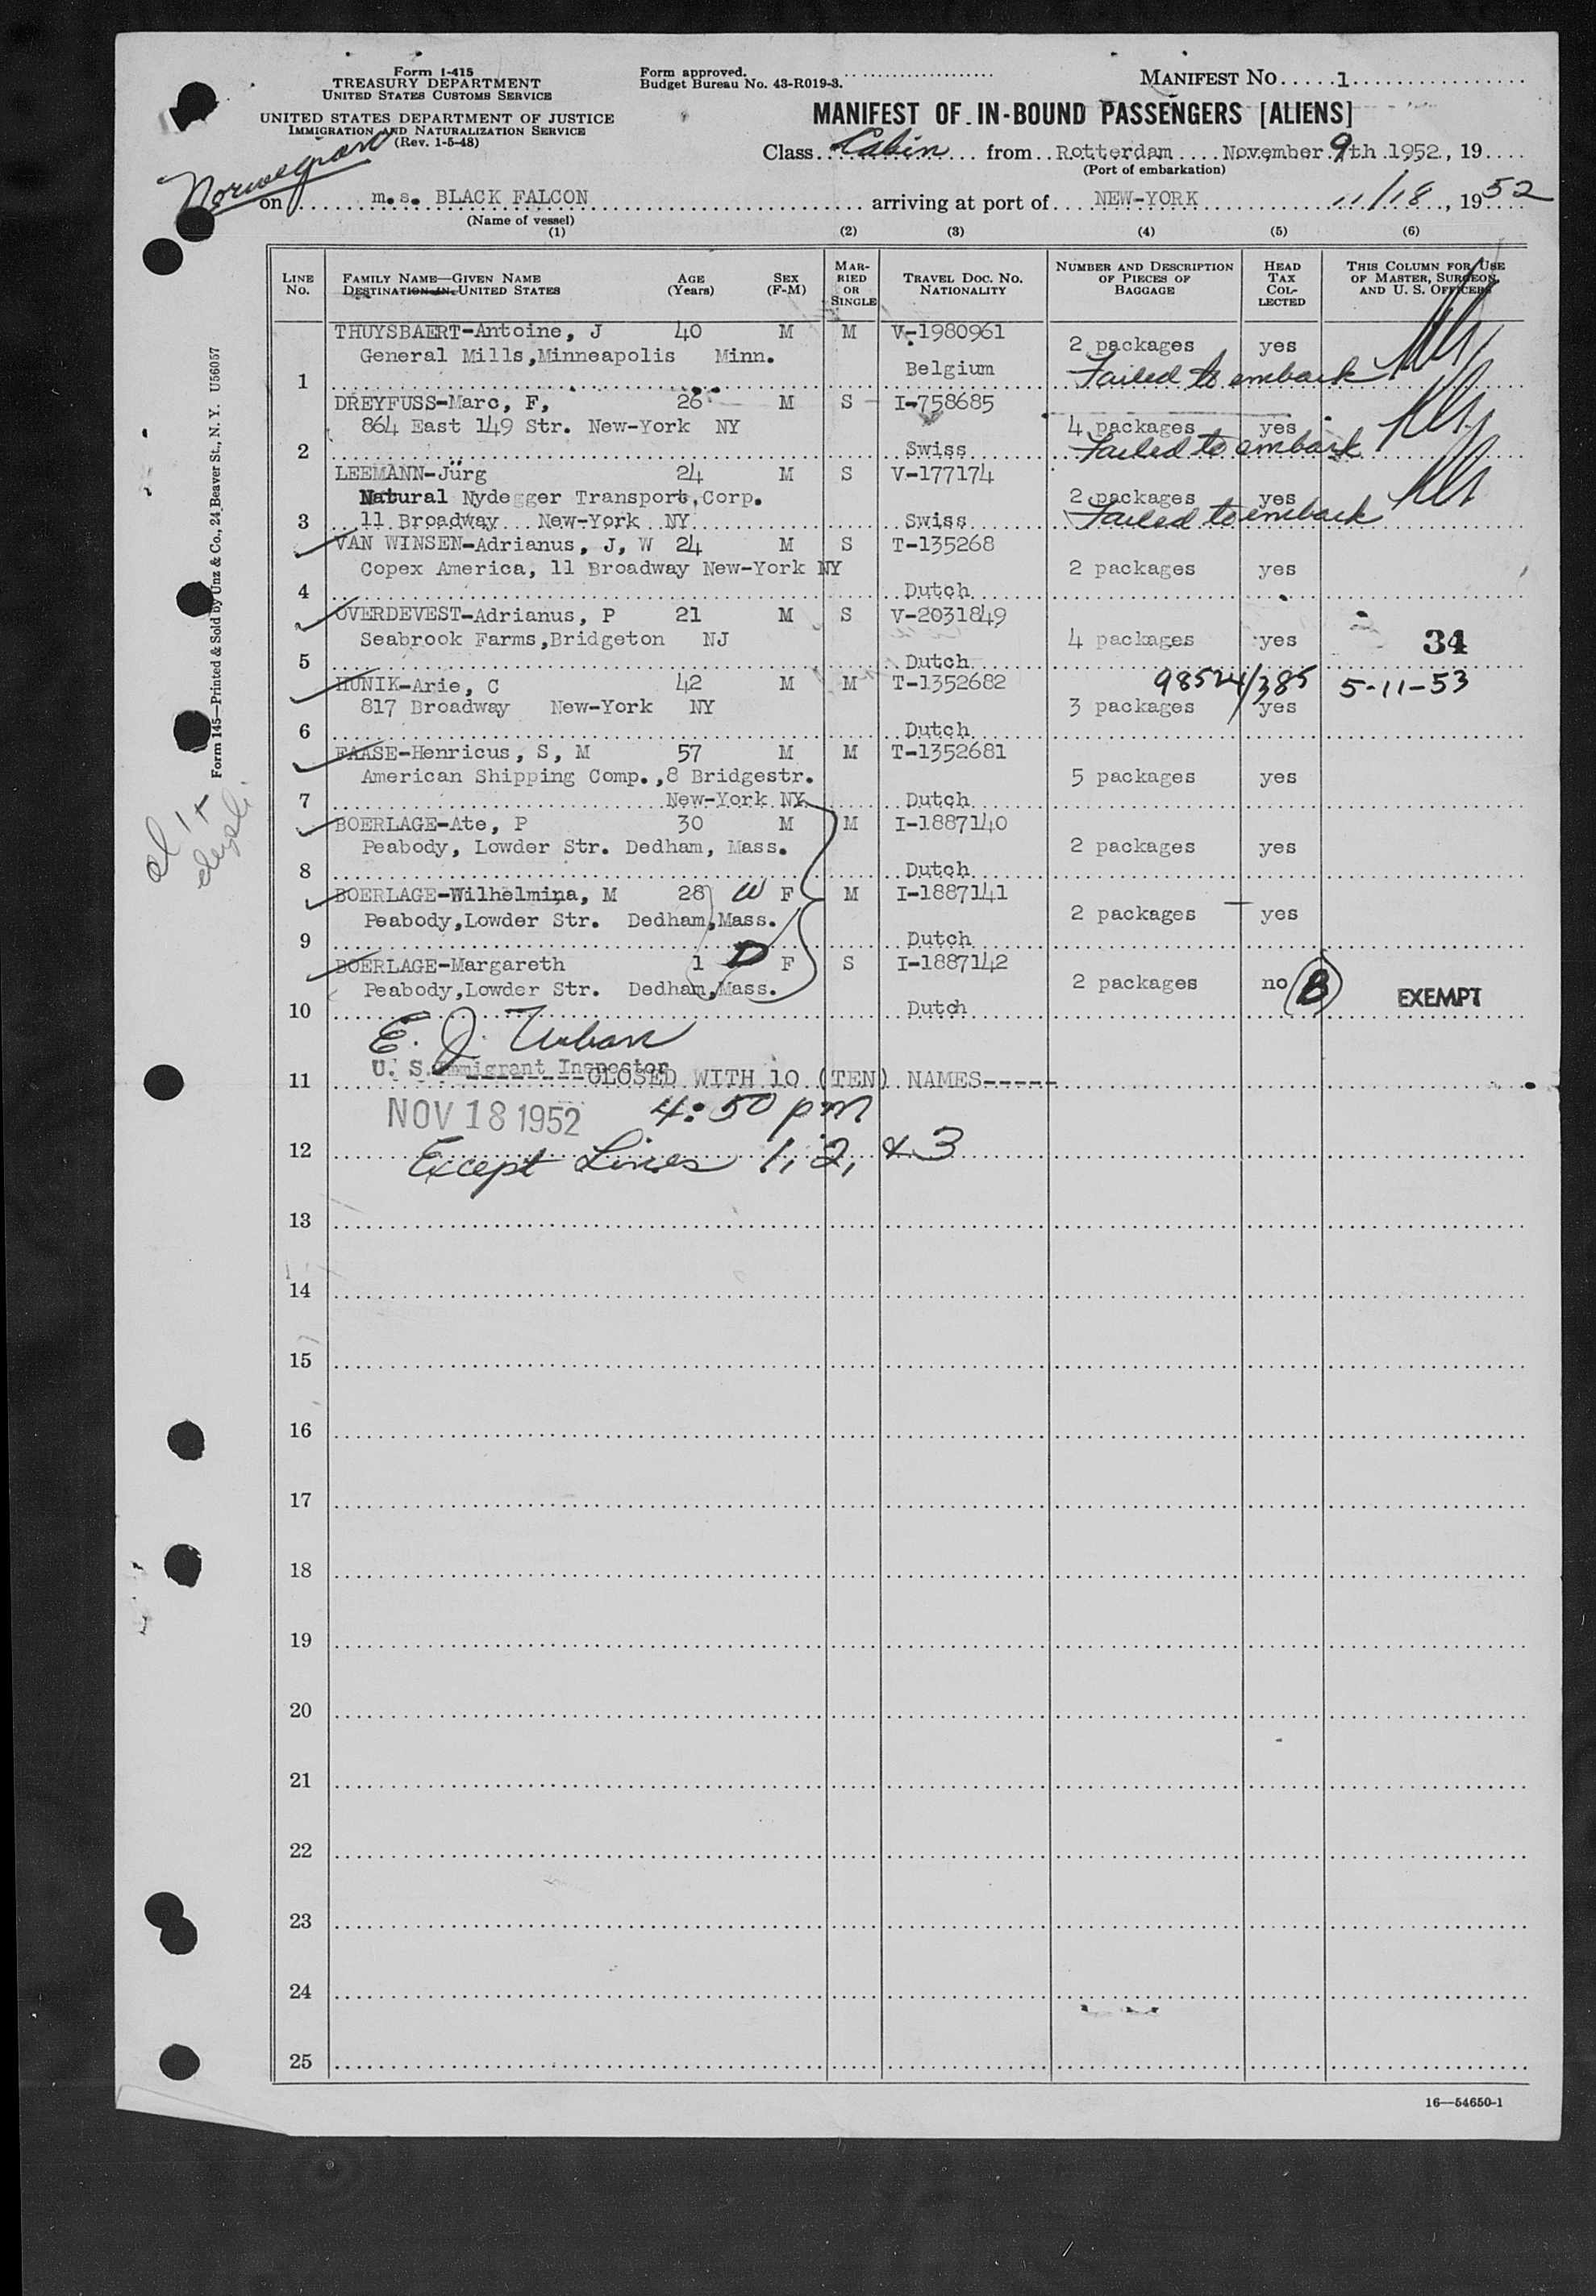 Form I-415
TREASURY DEPARTMENT
UNITED STATES CUSTOMS SERVICE
UNITED STATES DEPARTMENT OF JUSTICE
IMMIGRATION AND NATURALIZATION SERVICE
(Rev. 1-5-48)
Form approved.
Budget Bureau No. 43-R019-3.
MANIFEST NO. 1
MANIFEST OF IN-BOUND PASSENGERS [ALIENS]
Class Cabin from Rotterdam November 9th 1952, 19
(Port of embarkation)
Norwegian
on m.s. BLACK FALCON arriving at port of NEW-YORK 11/18, 1952
(Name of vessel)
(1) (2) (3) (4) (5) (6)
LINE No. FAMILY NAME—GIVEN NAME DESTINATION IN UNITED STATES AGE (Years) SEX (F-M) MARRIED OR SINGLE TRAVEL DOC. NO. NATIONALITY NUMBER AND DESCRIPTION OF PIECES OF BAGGAGE HEAD TAX COLLECTED THIS COLUMN FOR USE OF MASTER, SURGEON, AND U. S. OFFICERS
THUYSBAERT-Antoine, J 40 M M V-1980961
General Mills,Minneapolis Minn. 2 packages yes
1 Belgium Failed to embark
DREYFUSS-Marc, F, 26 M S I-758685
864 East 149 Str. New-York NY 4 packages yes
2 Swiss Failed to embark
LEEMANN-Jürg 24 M S V-177174
Natural Nydegger Transport,Corp. 2 packages yes
3 11 Broadway New-York NY Swiss Failed to embark
VAN WINSEN-Adrianus, J, W 24 M S T-135268
Copex America, 11 Broadway New-York NY 2 packages yes
4 Dutch
OVERDEVEST-Adrianus, P 21 M S V-2031849
Seabrook Farms,Bridgeton NJ 4 packages yes 34
5 Dutch
HUNIK-Arie, C 42 M M T-1352682 98524/385 5-11-53
817 Broadway New-York NY 3 packages yes
6 Dutch
FAASE-Henricus, S, M 57 M M T-1352681
American Shipping Comp.,8 Bridgestr. 5 packages yes
7 New-York NY Dutch
BOERLAGE-Ate, P 30 M M I-1887140
Peabody, Lowder Str. Dedham, Mass. 2 packages yes
8 Dutch
BOERLAGE-Wilhelmina, M 28 W F M I-1887141
Peabody,Lowder Str. Dedham,Mass. 2 packages yes
9 Dutch
BOERLAGE-Margareth 1 D F S I-1887142
Peabody,Lowder Str. Dedham,Mass. 2 packages no B EXEMPT
10 Dutch
E. J. Urban
U. S. Immigrant Inspector
11 --------CLOSED WITH 10 (TEN) NAMES-----
NOV 18 1952 4:50 pm
12 Except Lines 1, 2, & 3
13
14
15
16
17
18
19
20
21
22
23
24
25
16—54650-1
Form 145—Printed & Sold by Unz & Co., 24 Beaver St., N. Y. U56057